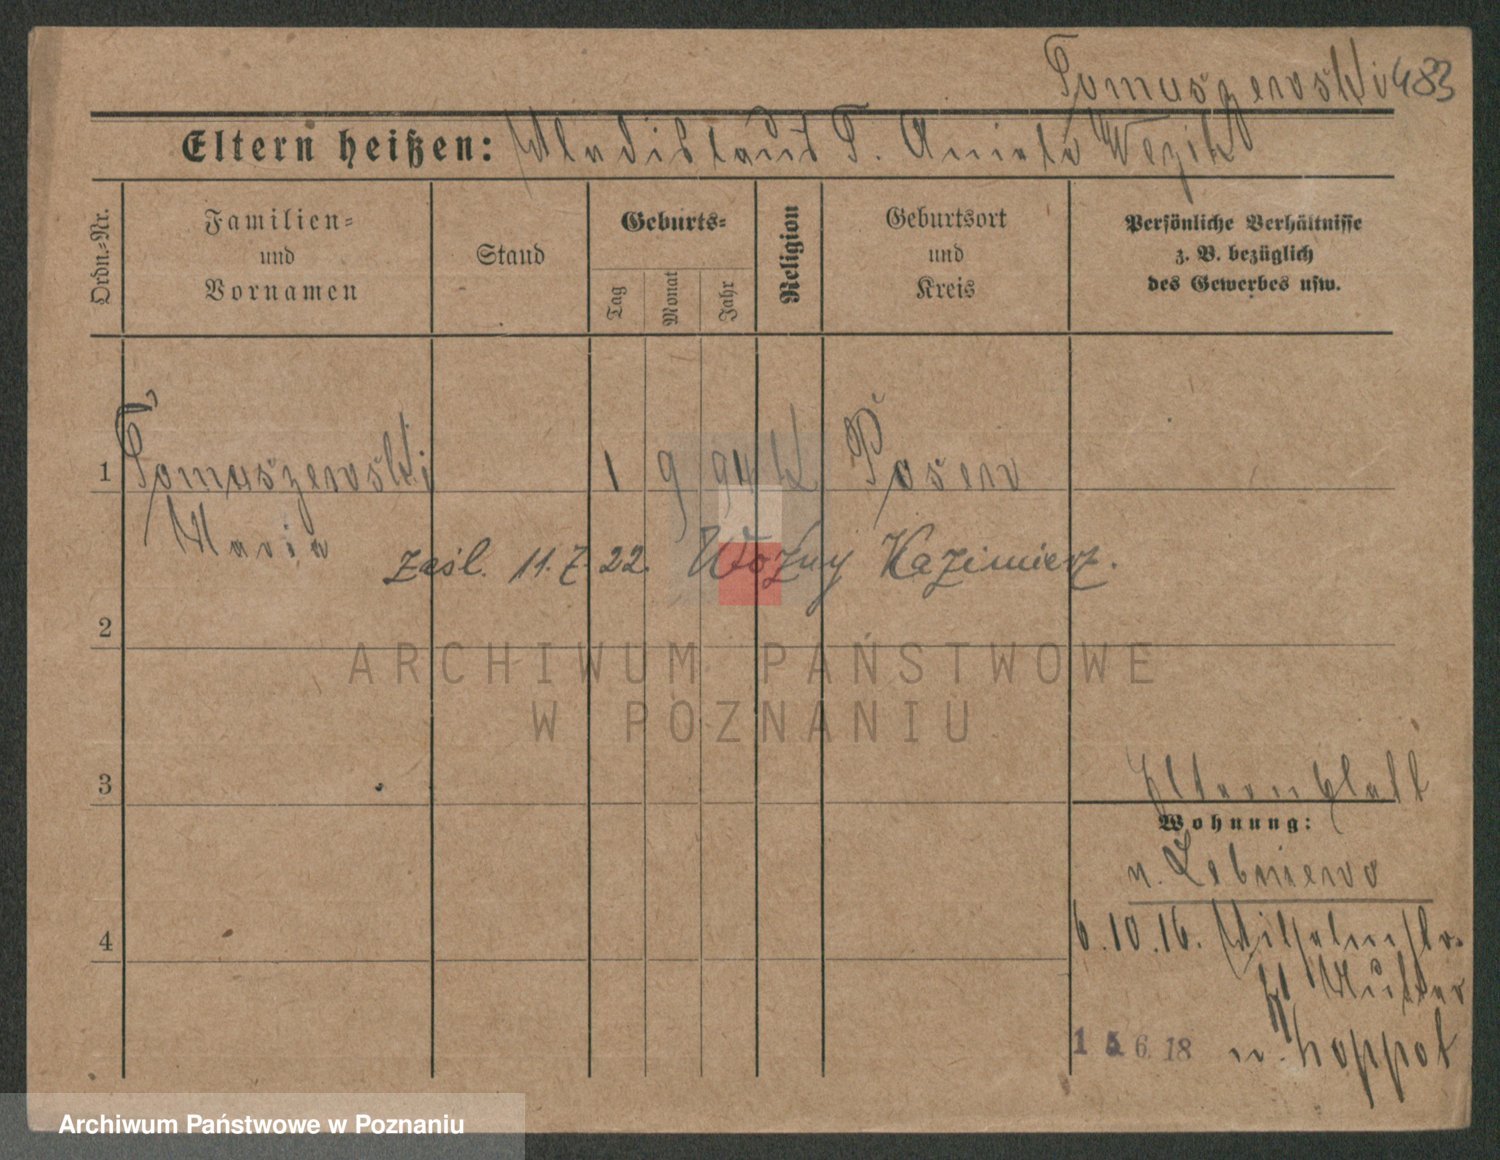 Tomaszewski 483
Eltern heißen: Wladislaus T. Aniela Węzik
Ordn.-Nr.
Familien-
und
Vornamen
Stand
Geburts-
Tag
Monat
Jahr
Religion
Geburtsort
und
Kreis
Persönliche Verhältnisse
z. B. bezüglich
des Gewerbes usw.
1 Tomaszewski 1 9 94 K Posen
Maria
zaśl. 11.7.22. Woźny Kazimierz.
2
ARCHIWUM PAŃSTWOWE
W POZNANIU
3
Elternblatt
Wohnung:
n. Lebniewo
4
6.10.16. Wilhelmstr.
Mutter
15 6. 18 n. Zoppot
Archiwum Państwowe w Poznaniu